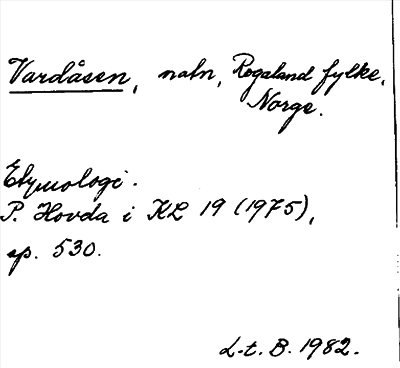 Vardåsen, natn, Rogaland fylke,
Norge.
Etymologi.
P. Hovda i KL 19 (1975),
sp. 530.
L-t. B. 1982.